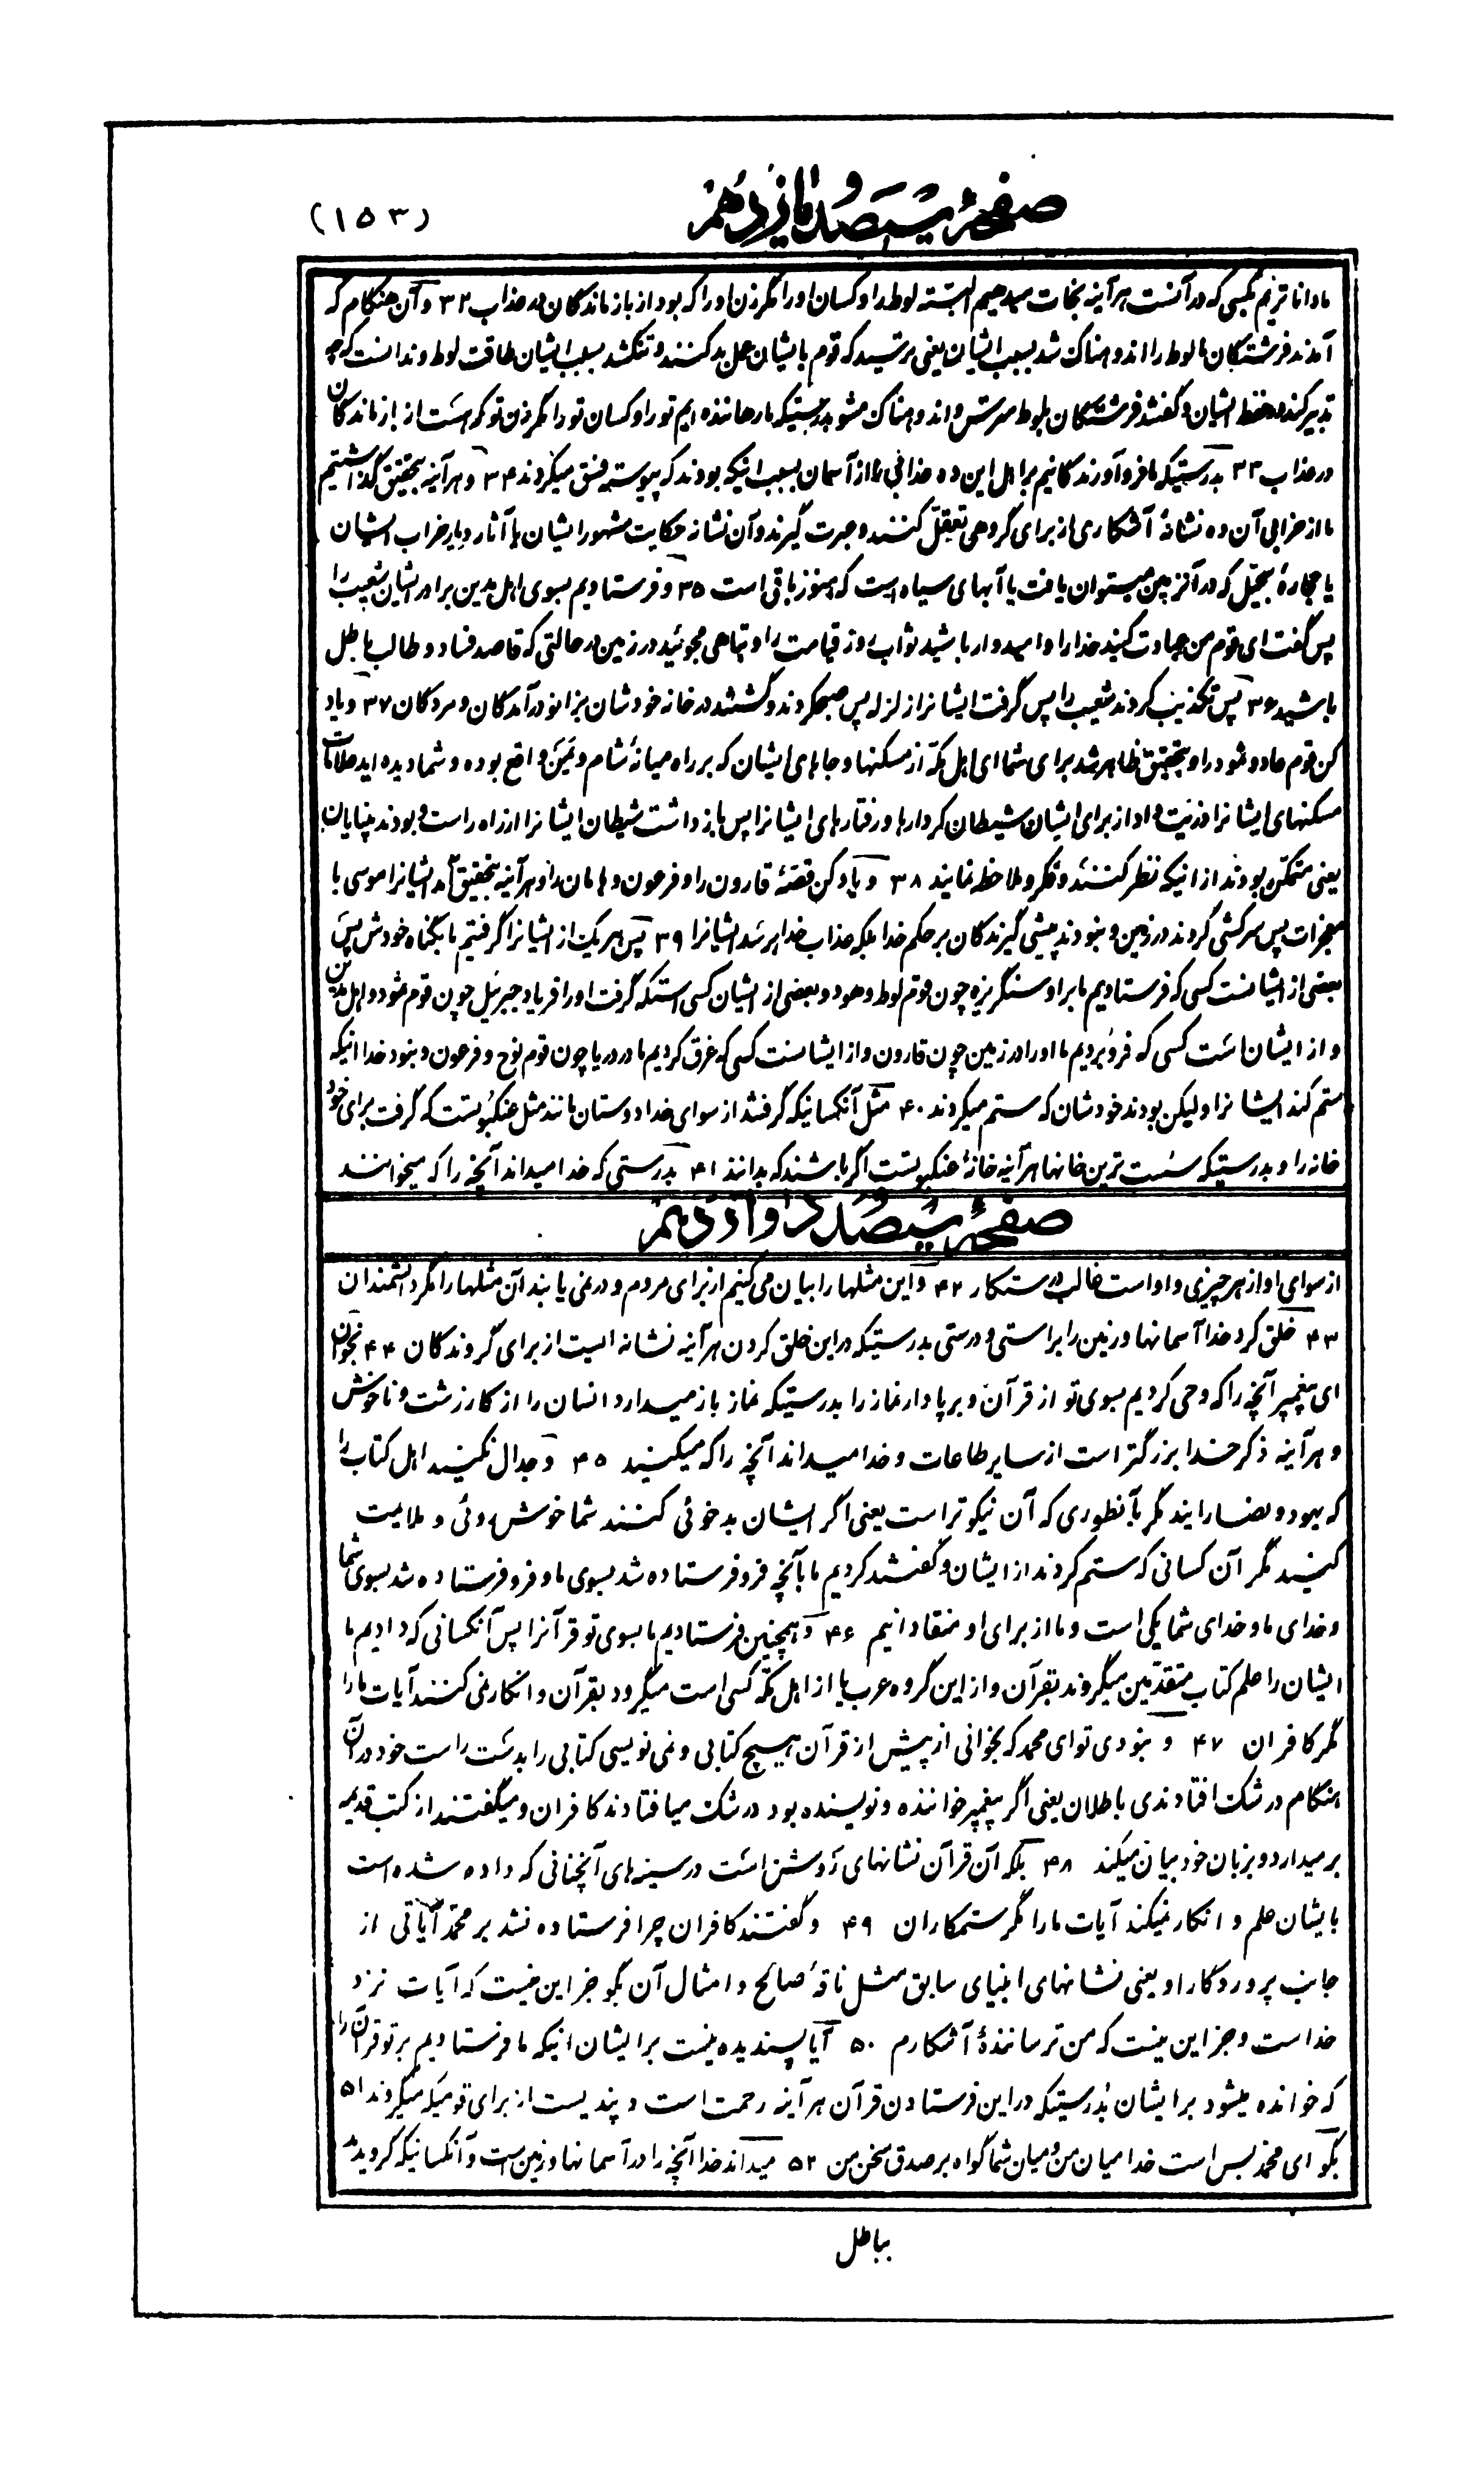 صفحهٔ سیصد و یازدهم
(۱۵۳)
ما داناتریم بکسی که در آنست هرآینه نجات میدهیم البته لوط را و کسان او را مگر زن او را که بود از بازماندگان در عذاب ۳۲ و آن هنگام که
آمدند فرشتگان ما لوط را اندوهناک شد بسبب ایشان یعنی ترسید که قوم بایشان عمل بد کنند و تنگ شد بسبب ایشان طاقت لوط و ندانست که چه
تدبیر کند در حفظ ایشان و گفتند فرشتگان بلوط مترس و اندوهناک مشو بدرستیکه ما رهاننده ایم تو را و کسان تو را مگر زن تو که است از بازماندگان
در عذاب ۳۳ بدرستیکه ما فروآورندگانیم بر اهل این ده عذابی را از آسمان بسبب اینکه بودند که پیوسته فسق میکردند ۳۴ و هرآینه بتحقیق گذاشتیم
ما از خرابی آن ده نشانهٔ آشکاری از برای گروهی تعقل کنند و عبرت گیرند و آن نشانه حکایت مشهور ایشان یا آثار دیار خراب ایشان
یا حجارهٔ سجیل که در آنزمین میتوان یافت یا آبهای سیاه است که هنوز باقی است ۳۵ و فرستادیم بسوی اهل مدین برادر ایشان شعیب را
پس گفت ای قوم من عبادت کنید خدا را و امیدوار باشید ثواب روز قیامت را و تباهی مجوئید در زمین در حالتی که قاصد فساد و طالب باطل
باشید ۳۶ پس تکذیب کردند شعیب را پس گرفت ایشانرا زلزله پس صبح کردند و گشتند در خانه خودشان بزانو درآمدگان و مردگان ۳۷ و یاد
کن قوم عاد و ثمود را و بتحقیق ظاهر شد برای شما ای اهل مکه از مسکنها و جاهای ایشان که بر راه میانهٔ شام و یمن واقع بوده و شما دیده اید علامات
مسکنهای ایشانرا و زینت داد از برای ایشان شیطان کردارها و رفتارهای ایشانرا پس بازداشت شیطان ایشانرا از راه راست و بودند بینایان
یعنی متمکن بودند از اینکه نظر کنند و فکر و ملاحظه نمایند ۳۸ و یاد کن قصهٔ قارون را و فرعون و هامان را و هرآینه بتحقیق آمد ایشانرا موسی با
معجزات پس سرکشی کردند در زمین و نبودند پیشی گیرندگان بر حکم خدا بلکه عذاب خدا برسد ایشانرا ۳۹ پس هر یک از ایشانرا گرفتیم ما بگناه خودش پس
بعضی از ایشانست کسی که فرستادیم ما بر او سنگریزه چون قوم لوط و هود و بعضی از ایشان کسی استکه گرفت او را فریاد جبرئیل چون قوم ثمود و اهل مدین
و از ایشان است کسی که فرو بردیم ما او را در زمین چون قارون و از ایشانست کسی که غرق کردیم ما در دریا چون قوم نوح و فرعون و نبود خدا اینکه
ستم کند ایشانرا ولیکن بودند خودشان که ستم میکردند ۴۰ مثل آنکسانیکه گرفتند از سوای خدا دوستان مانند مثل عنکبوتست که گرفت برای خود
خانه را و بدرستیکه سست ترین خانها هرآینه خانهٔ عنکبوتست اگر باشند که بدانند ۴۱ بدرستی که خدا میداند آنچه را که میخوانند
صفحهٔ سیصد و دوازدهم
از سوای او از هر چیزی و او است غالب درستکار ۴۲ و این مثلها را بیان می کنیم از برای مردم و در نمی یابند آن مثلها را مگر دانشمندان
۴۳ خلق کرد خدا آسمانها و زمین را براستی و درستی بدرستیکه در این خلق کردن هرآینه نشانه ایست از برای گروندگان ۴۴ بخوان
ای پیغمبر آنچه را که وحی کردیم بسوی تو از قرآن و برپا دار نماز را بدرستیکه نماز باز میدارد انسان را از کار زشت و ناخوش
و هرآینه ذکر خدا بزرگتر است از سایر طاعات و خدا میداند آنچه را که میکنید ۴۵ و جدال نکنید اهل کتاب را
که یهود و نصارایند مگر بآنطوری که آن نیکوتر است یعنی اگر ایشان بدخوئی کنند شما خوش روئی و ملایمت
کنید مگر آن کسانی که ستم کردند از ایشان و گفتند گرویدیم ما بآنچه فروفرستاده شد بسوی ما و فروفرستاده شد بسوی شما
و خدای ما و خدای شما یکی است و ما از برای او منقادانیم ۴۶ و همچنین فرستادیم ما بسوی تو قرآنرا پس آنکسانی که دادیم ما
ایشان را علم کتاب متقدمین میگروند بقرآن و از این گروه عرب یا از اهل مکه کسی است میگرود بقرآن و انکار نمی کنند آیات ما را
مگر کافران ۴۷ و نبودی تو ای محمد که بخوانی از پیش از قرآن هیچ کتابی و نمی نویسی کتابی را بدست راست خود در آن
هنگام در شک افتادندی باطلان یعنی اگر پیغمبر خواننده و نویسنده بود در شک میافتادند کافران و میگفتند از کتب قدیمه
برمیدارد و بزبان خود بیان میکند ۴۸ بلکه آن قرآن نشانهای روشن است در سینه های آنچنانی که داده شده است
بایشان علم و انکار نمیکند آیات ما را مگر ستمکاران ۴۹ و گفتند کافران چرا فرستاده نشد بر محمد آیاتی از
جانب پروردگار او یعنی نشانهای انبیای سابق مثل ناقهٔ صالح و امثال آن بگو جز این نیست که آیات نزد
خداست و جز این نیست که من ترسانندهٔ آشکارم ۵۰ آیا پسندیده نیست بر ایشان اینکه ما فرستادیم بر تو قرآن را
که خوانده میشود بر ایشان بدرستیکه در این فرستادن قرآن هرآینه رحمت است و پندیست از برای قومیکه میگروند ۵۱
بگو ای محمد بس است خدا میان من و میان شما گواه بر صدق سخن من ۵۲ میداند خدا آنچه را در آسمانها و زمین است و آنکسانیکه گرویدند
بباطل